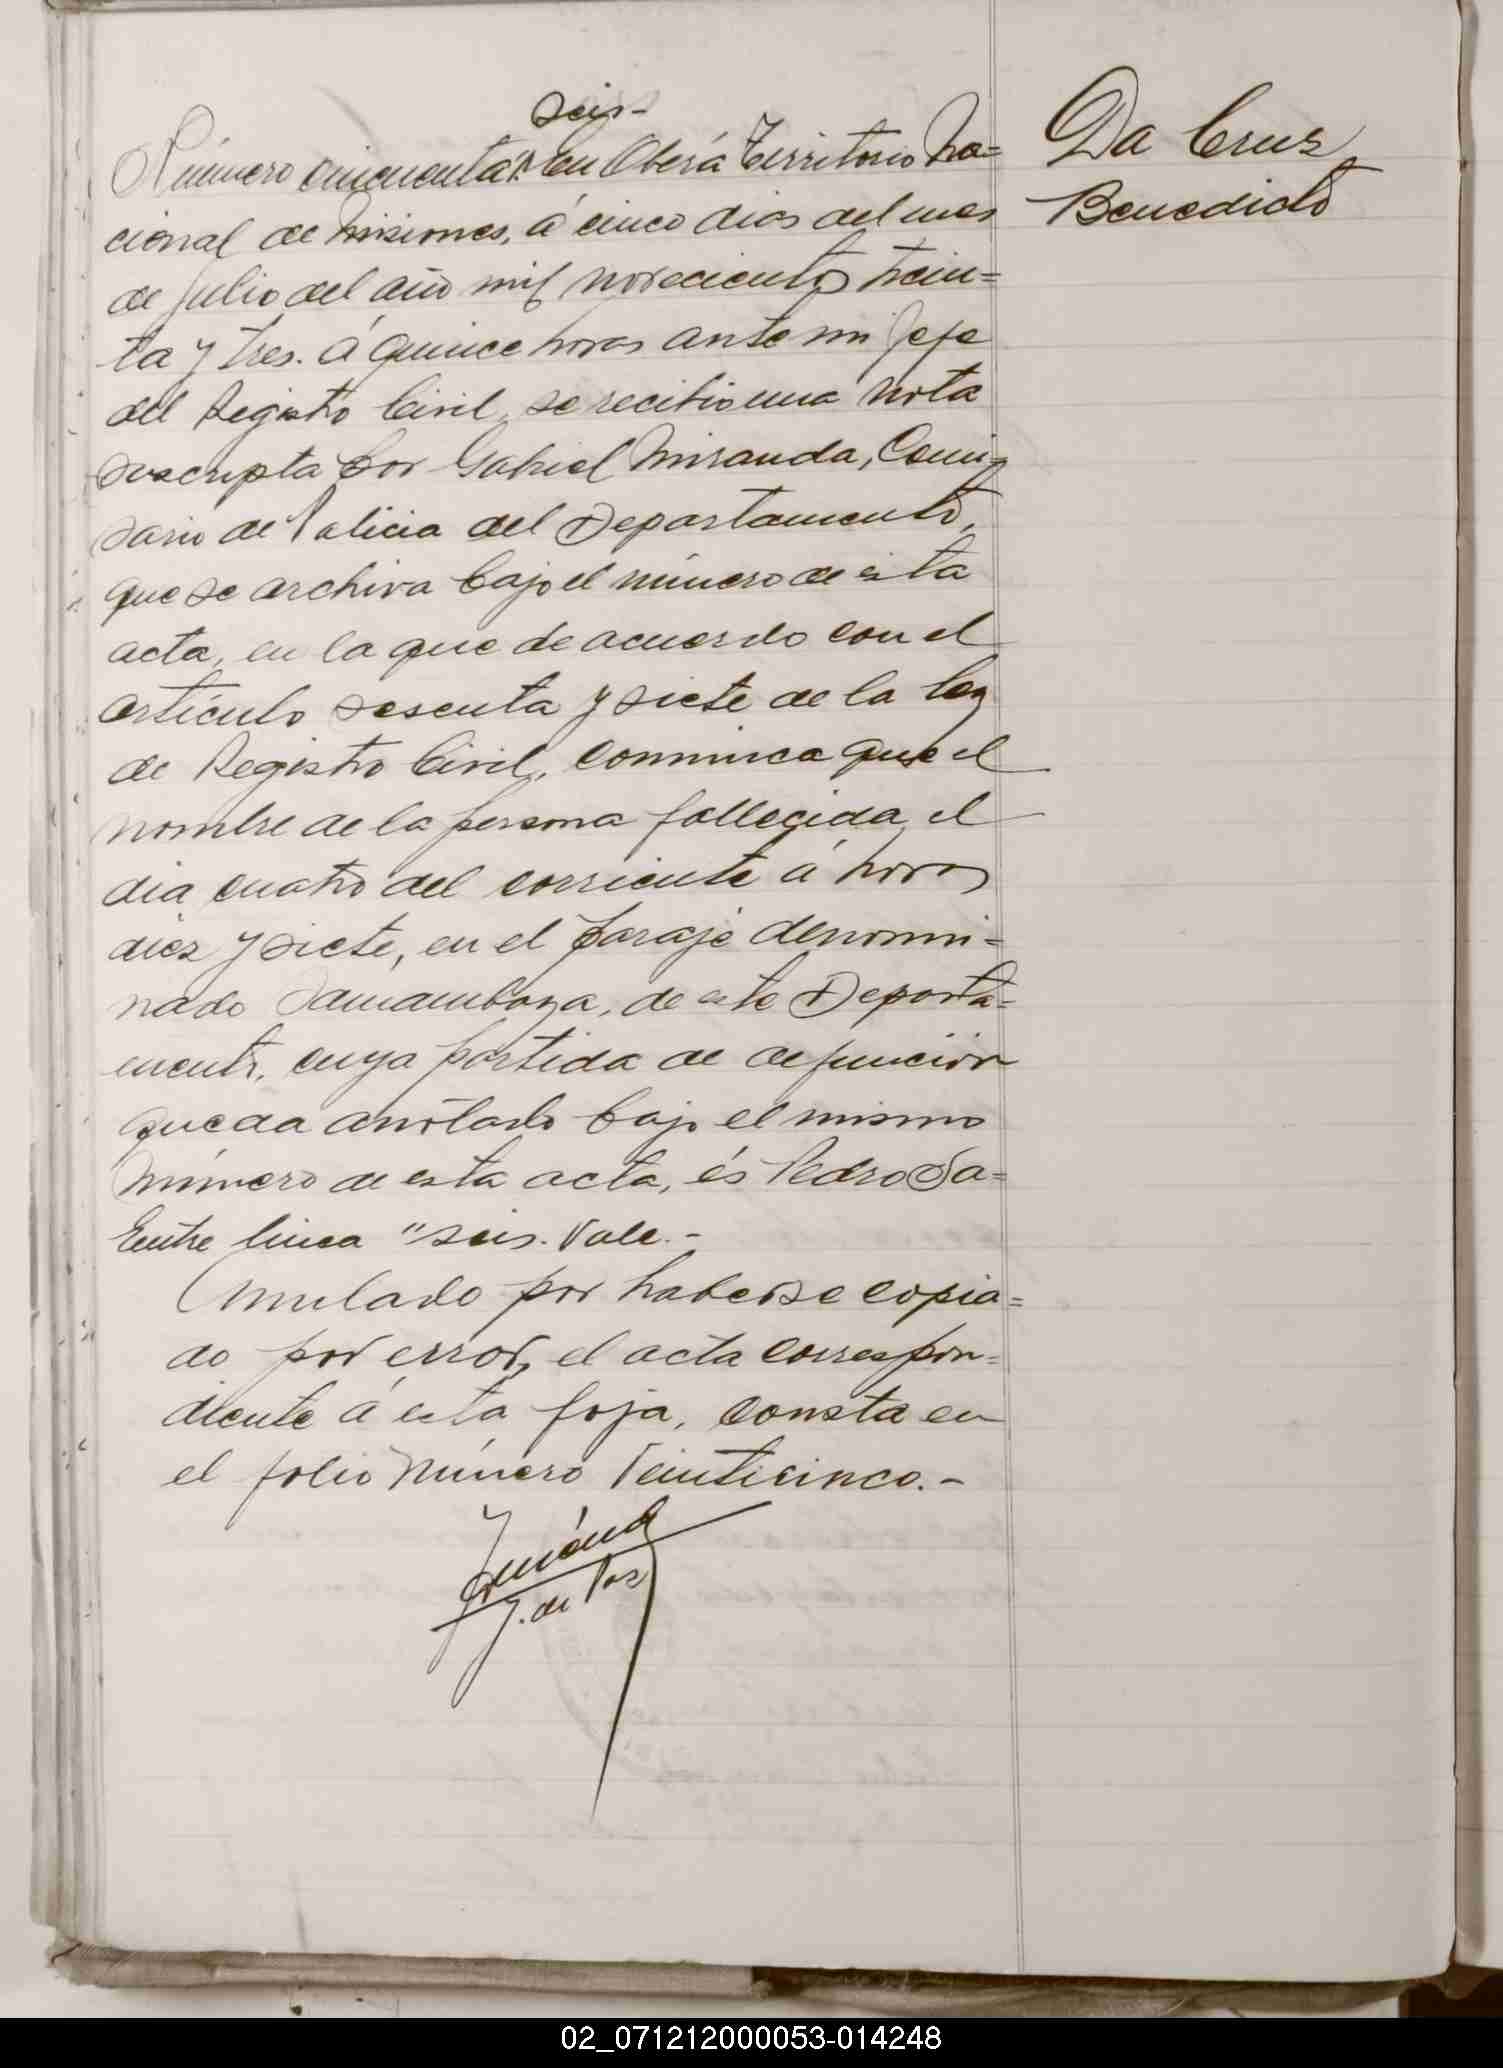 seis-
Número cincuenta. En Oberá Territorio Na=
cional de Misiones, á cinco dias del mes
de Julio del año mil novecientos trein=
ta y tres. á quince horas ante mi Jefe
del Registro Civil, se recibio una nota
suscripta por Gabriel Miranda, Comi=
sario de Policia del Departamento,
que se archiva bajo el número de esta
acta, en la que de acuerdo con el
artículo sesenta y siete de la ley
de Registro Civil, comunica que el
nombre de la persona fallecida el
dia cuatro del corriente á horas
diez y siete, en el paraje denomi=
nado Samambaya, de este Departa=
mento, cuya partida de defunción
queda anotado bajo el mismo
número de esta acta, és Pedro Sa=
Entre linea "seis. Vale.-
Anulado por haberse copia=
do por error, el acta correspon=
diente á esta foja, consta en
el folio número Veinticinco.-
J. de Paz
Da Cruz
Benedicto
02_071212000053-014248